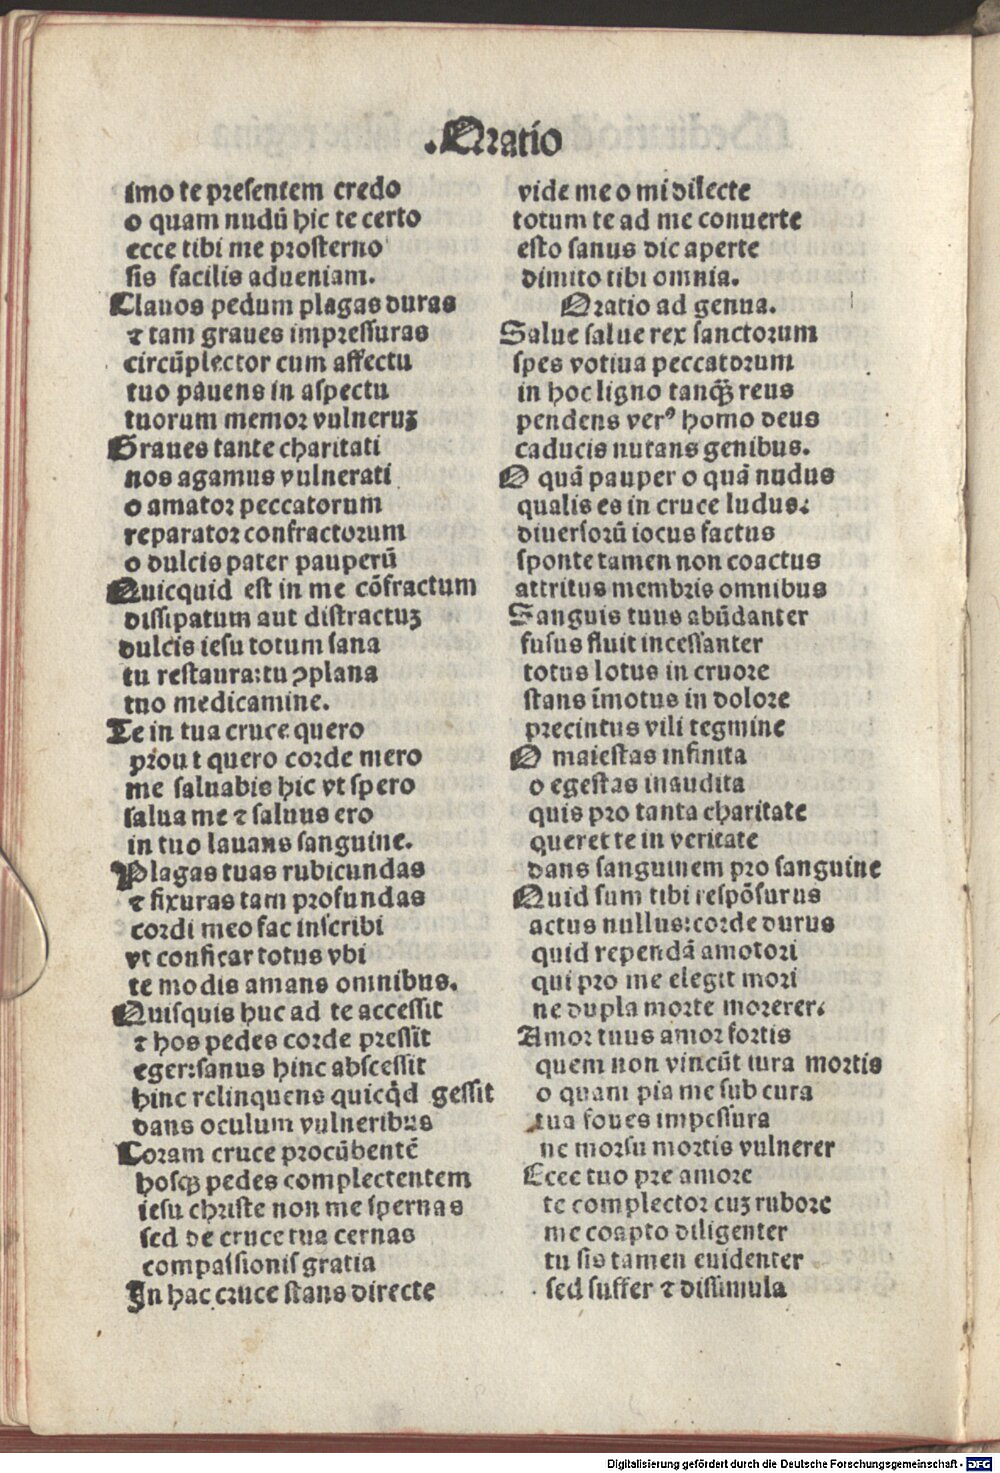 .Oratio
imo te presentem credo
o quam nudū hic te certo
ecce tibi me prosterno
sis facilis adueniam.
Clauos pedum plagas duras
⁊ tam graues impressuras
circūplector cum affectu
tuo pauens in aspectu
tuorum memor vulneruꝫ
Graues tante charitati
nos agamus vulnerati
o amator peccatorum
reparator confractorum
o dulcis pater pauperū
Quicquid est in me cōfractum
dissipatum aut distractuꝫ
dulcis iesu totum sana
tu restaura:tu ꝯplana
tuo medicamine.
Te in tua cruce quero
prout quero corde mero
me saluabis hic vt spero
salua me ⁊ saluus ero
in tuo lauans sanguine.
Plagas tuas rubicundas
⁊ fixuras tam profundas
cordi meo fac inscribi
vt conficar totus vbi
te modis amans omnibus.
Quisquis huc ad te accessit
⁊ hos pedes corde pressīt
eger:sanus hinc abscessit
hinc relinquens quicq̇d gessit
dans osculum vulneribus
Coram cruce procūbentē
hosqꝫ pedes complectentem
iesu christe non me spernas
sed de cruce tua cernas
compassionis gratia
In hac cruce stans directe
vide me o mi dilecte
totum te ad me conuerte
esto sanus dic aperte
dimito tibi omnia.
Oratio ad genua.
Salue salue rex sanctorum
spes votiua peccatorum
in hoc ligno tanqꝫ̄ reus
pendens verꝰ homo deus
caducis nutans genibus.
O quā pauper o quā nudus
qualis es in cruce ludus:
diuersorū iocus factus
sponte tamen non coactus
attritus membris omnibus
Sanguis tuus abūdanter
fusus fluit incessanter
totus lotus in cruore
stans īmotus in dolore
precintus vili tegmine
O maiestas infinita
o egestas inaudita
quis pro tanta charitate
queret te in veritate
dans sanguinem pro sanguine
Quid sum tibi respōsurus
actus nullus:corde durus
quid rependā amotori
qui pro me elegit mori
ne dupla morte morerer.
Amor tuus amor fortis
quem non vincūt iura mortis
o quam pia me sub cura
tua foues impessura
ne morsu mortis vulnerer
Ecce tuo pre amore
te complector cuꝫ rubore
me coapto diligenter
tu sis tamen euidenter
sed suffer ⁊ dissimula
Digitalisierung gefördert durch die Deutsche Forschungsgemeinschaft - DFG